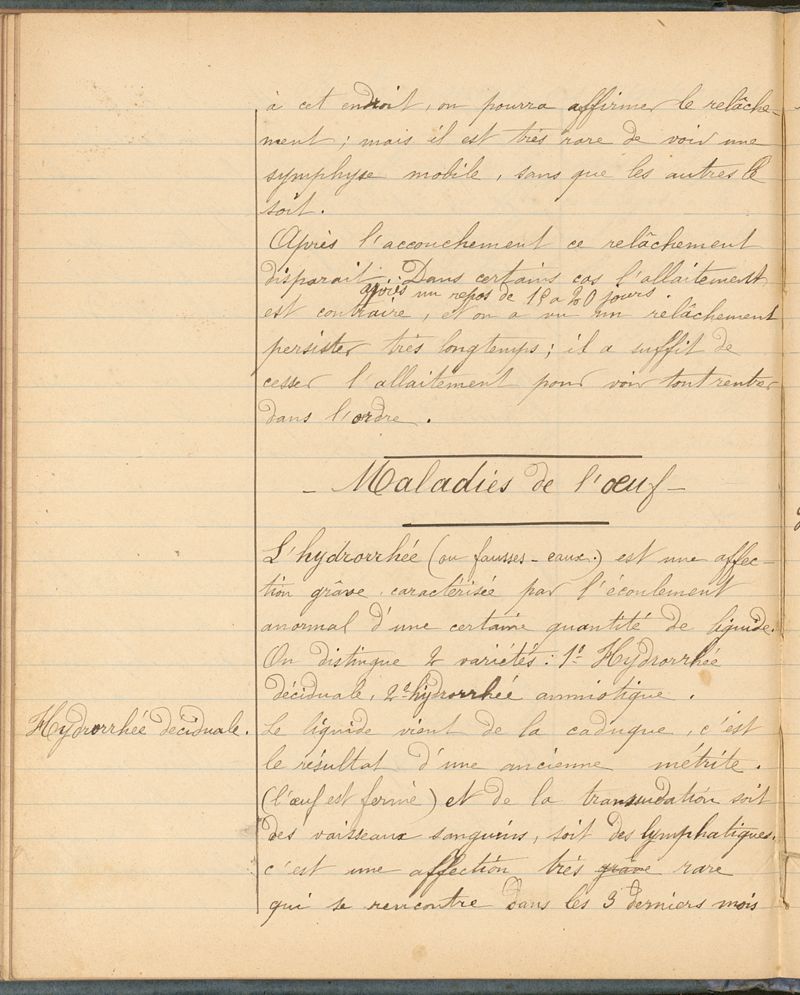 à cet endroit, on pourra affirmer le relâche-
ment ; mais il est très rare de voir une
symphyse mobile, sans que les autres le
soit.
Après l'accouchement ce relâchement
disparait. Dans certains cas l'allaitement
après un repos de 18 a 20 jours.
est contraire, et on a vu un relâchement
persister très longtemps ; il a suffit de
cesser l'allaitement pour voir tout rentrer
dans l'ordre.
- Maladies de l'œuf -
L'hydrorrhée (ou fausses-eaux.) est une affec-
tion grâve, caractérisée par l'écoulement
anormal d'une certaine quantité de liquide.
On distingue 2 variétés : 1º Hydrorrhée
déciduale, 2º hydrorrhée amniotique.
Hydrorrhée déciduale.
Le liquide vient de la caduque, c'est
le résultat d'une ancienne métrite.
(l'œuf est fermé) et de la transsudation soit
des vaisseaux sanguins, soit des lymphatiques.
c'est une affection très grâve rare
qui se rencontre dans les 3 derniers mois